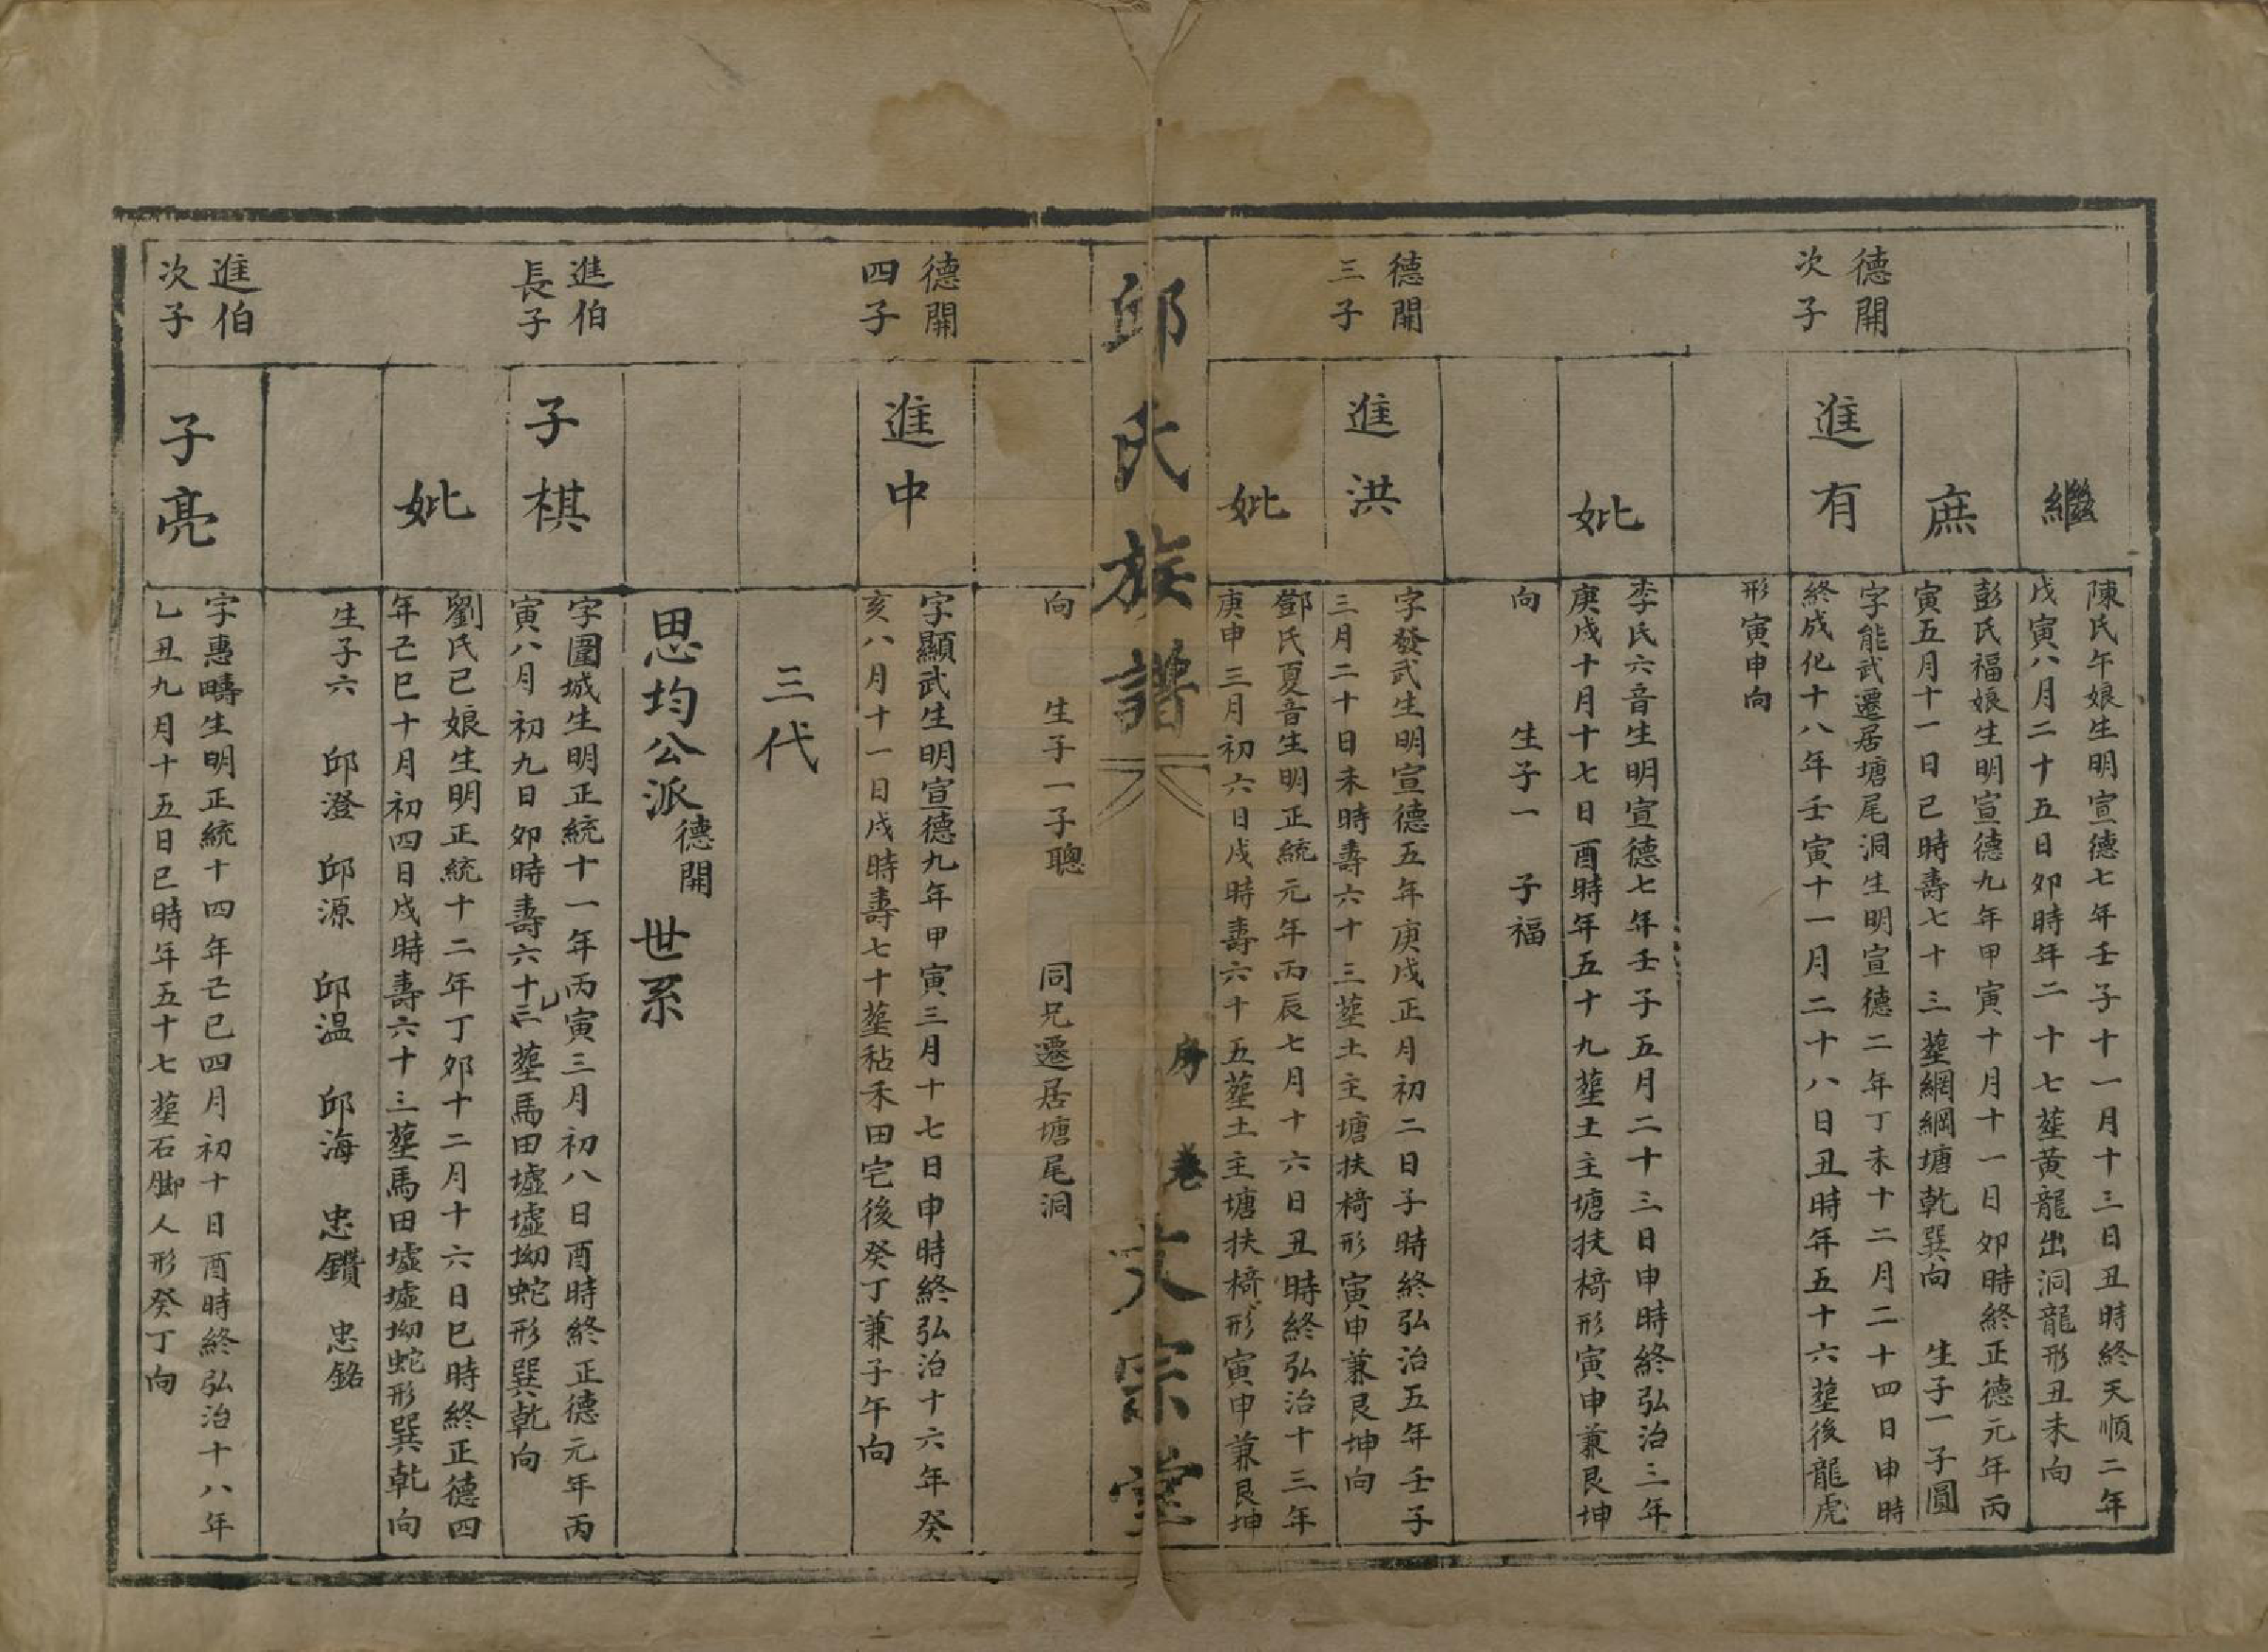 繼
陳氏午娘生明宣德七年壬子十一月十三日丑時終天順二年
戊寅八月二十五日卯時年二十七塟黃龍出洞龍形丑未向
庶
彭氏福娘生明宣德九年甲寅十月十一日卯時終正德元年丙
寅五月十一日巳時壽七十三塟網綱塘乾巽向　生子一子圓
德開
次子
進有
字能武遷居塘尾洞生明宣德二年丁未十二月二十四日申時
終成化十八年壬寅十一月二十八日丑時年五十六塟後龍虎
形寅申向
妣
李氏六音生明宣德七年壬子五月二十三日申時終弘治三年
庚戌十月十七日酉時年五十九塟土主塘扶椅形寅申兼艮坤
向　生子一　子福
德開
三子
進洪
字發武生明宣德五年庚戌正月初二日子時終弘治五年壬子
三月二十日未時壽六十三塟土主塘扶椅形寅申兼艮坤向
妣
鄧氏夏音生明正統元年丙辰七月十六日丑時終弘治十三年
庚申三月初六日戌時壽六十五塟土主塘扶椅形寅申兼艮坤
邱氏族譜
房　卷
文宗堂
向　生子一子聰　同兄遷居塘尾洞
德開
四子
進中
字顯武生明宣德九年甲寅三月十七日申時終弘治十六年癸
亥八月十一日戌時壽七十塟秥禾田宅後癸丁兼子午向
三代
思均公派德開世系
進伯
長子
子棋
字圍城生明正統十一年丙寅三月初八日酉時終正德元年丙
寅八月初九日卯時壽六十三塟馬田墟墟坳蛇形巽乾向
妣
劉氏已娘生明正統十二年丁卯十二月十六日巳時終正德四
年己巳十月初四日戌時壽六十三塟馬田墟墟坳蛇形巽乾向
生子六　邱澄　邱源　邱温　邱海　忠鑽　忠銘
進伯
次子
子亮
字惠疇生明正統十四年己巳四月初十日酉時終弘治十八年
乙丑九月十五日巳時年五十七塟石脚人形癸丁向